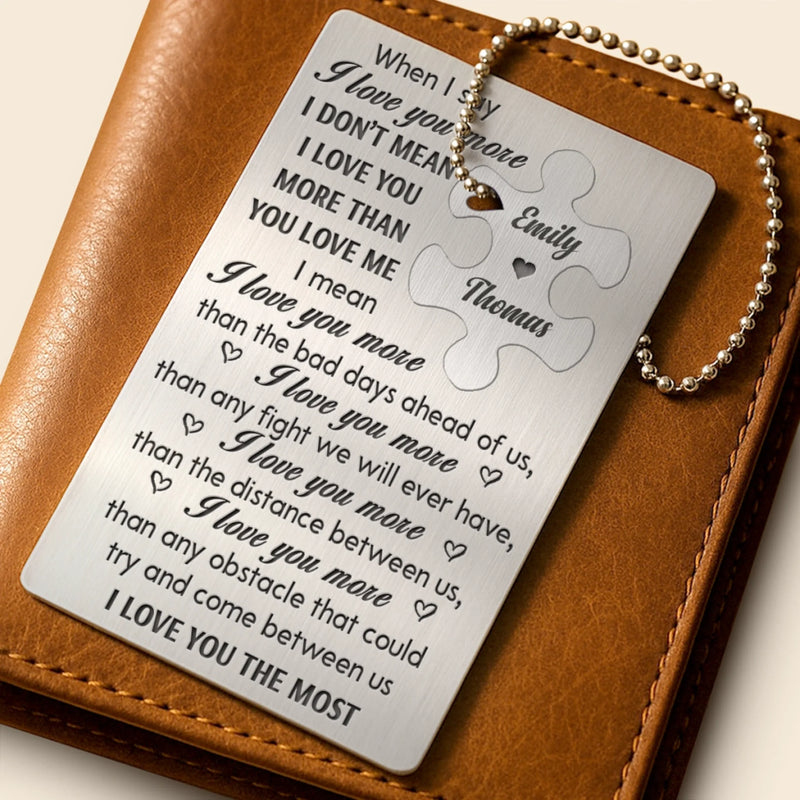 When I say
I love you more
I DON'T MEAN
I LOVE YOU
MORE THAN
YOU LOVE ME
I mean
I love you more
than the bad days ahead of us,
I love you more
than any fight we will ever have,
I love you more
than the distance between us,
I love you more
than any obstacle that could
try and come between us
I LOVE YOU THE MOST
Emily
Thomas